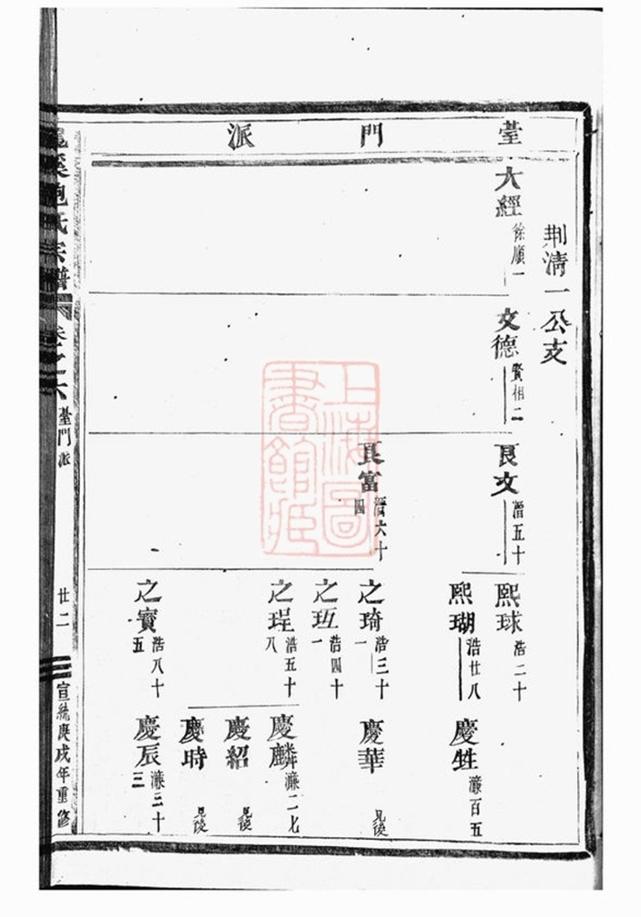 臺門派
荆清一公支
大經 徐廟一
文德 賢相二
良文 濳五十
良富 濳六十四
熙球 浩二十
熙瑚 浩廿八
之琦 浩三十一
之珏 浩四十一
之珵 浩五十八
之實 浩八十五
慶甡 濂百五
慶華 見後
慶麟 濂二七
慶紹 見後
慶時 見後
慶辰 濂三十三
鮑氏宗譜
卷之六
臺門派
廿二
宣統庚戌年重修
上海圖書館藏